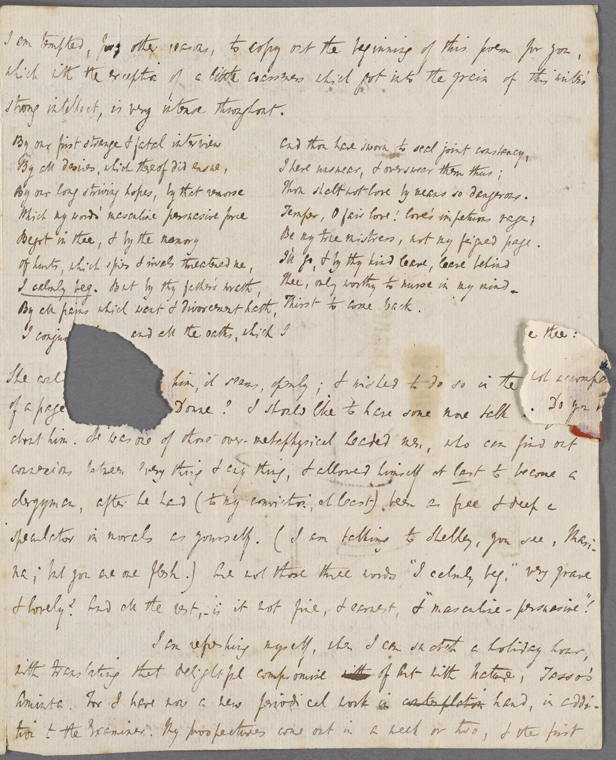 I am tempted, for other reasons, to copy out the beginning of this poem for you,
which with the exception of a little coarseness which got into the grain of this writer's
strong intellect, is very intense throughout.
By our first strange & fatal interview
By all desires, which thereof did ensue,
By our long striving hopes, by that remorse
Which my words' masculine persuasive force
Begot in thee, & by the memory
Of hurts, which spies & rivals threatened me,
I calmly beg. But by thy father's wrath,
By all pains which want & divorcement hath,
I conju and all the oaths, which I
and thou have sworn to seal joint constancy,
I here unswear, & overswear them thus;
Thou shalt not love by means so dangerous.
Temper, O fair love! love's impetuous rage;
Be my true mistress, not my feigned page.
I'll go, & by thy kind leave, leave behind
Thee, only worthy to nurse in my mind
Thirst to come back.
e thee:
She him, it seems, openly; & wished to do so in the not accompa
of a page Donne? I should like to have some more talk Do you
about him. He was one of those over-metaphysical headed men, who can find out
connexions between every thing & any thing, & allowed himself at last to become a
clergyman, after he had (to my conviction, at least) been as free & deep a
speculator in morals as yourself. (I am talking to Shelley, you see, Mari-
na; but you are one flesh.) Are not those three words "I calmly beg," very grave
& lovely? And all the rest,—is it not fine, & earnest, & "masculine-persuasive"!
I am refreshing myself, when I can snatch a holiday hour,
with translating that delightful compromise of Art with Nature, Tasso's
Aminta. For I have now a new periodical work in contemplation hand, in addi-
tion to the Examiner. My prospectuses come out in a week or two, & the first